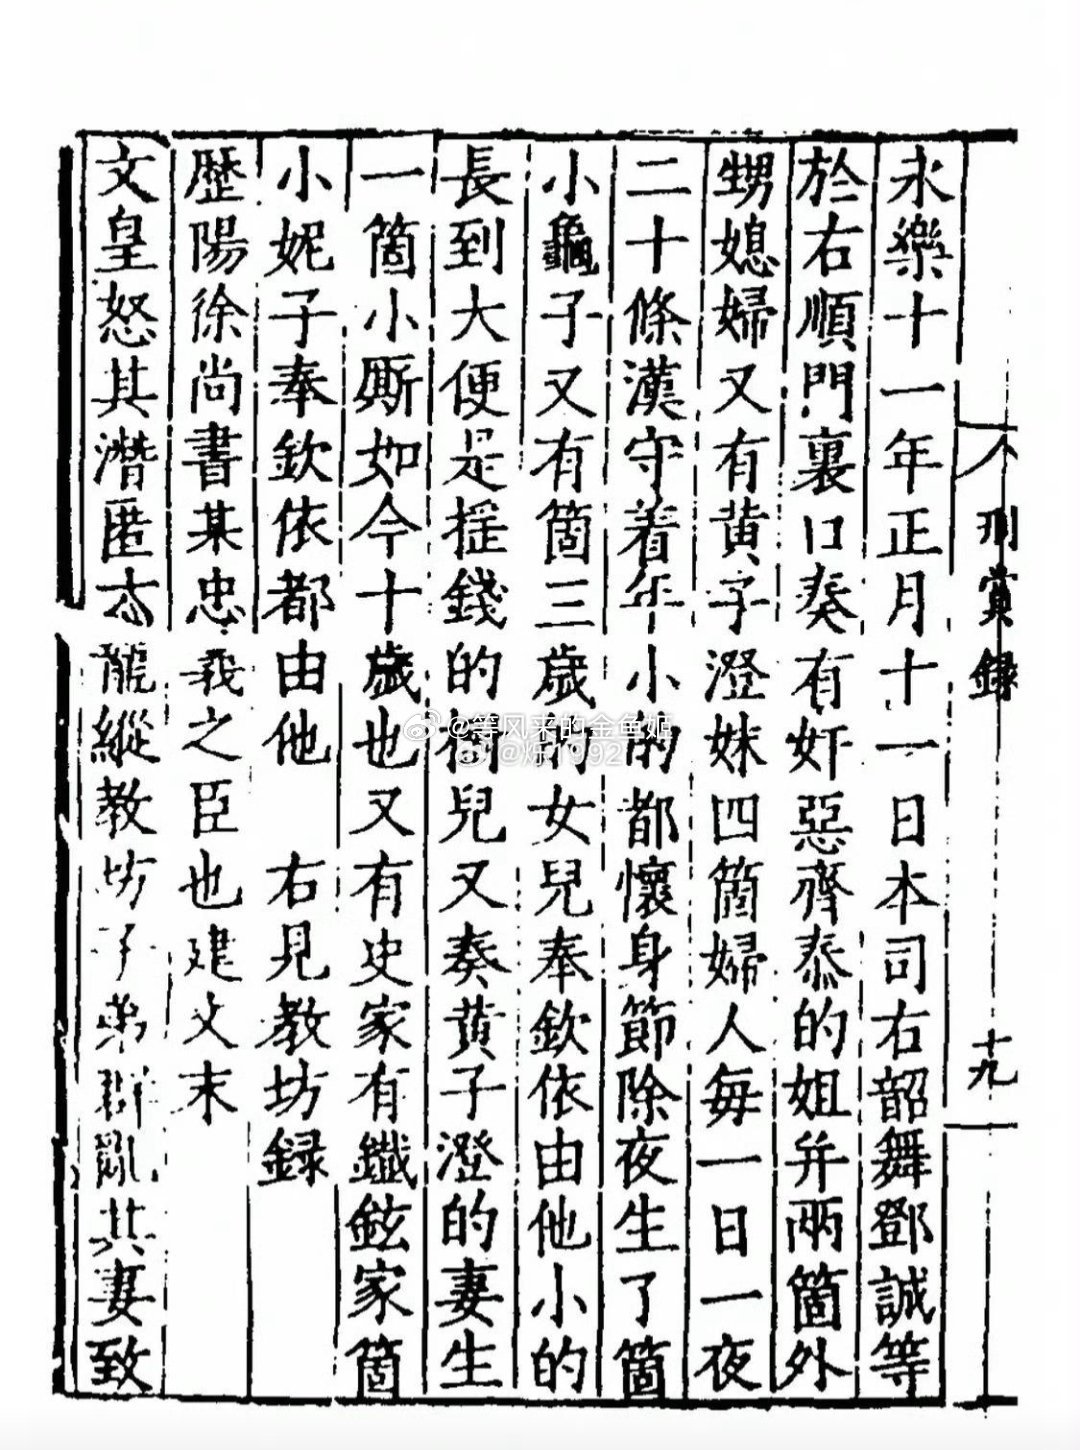 刑賞録
十九
永樂十一年正月十一日本司右韶舞鄧誠等
於右順門裏口奏有奸惡齊泰的姐并兩箇外
甥媳婦又有黄子澄妹四箇婦人每一日一夜
二十條漢守着年小的都懷身節除夜生了箇
小龜子又有箇三歲的女兒奉欽依由他小的
長到大便是摇錢的樹兒又奏黄子澄的妻生
一箇小厮如今十歲也又有史家有鐵鉉家箇
小妮子奉欽依都由他　右見教坊録
歷陽徐尚書某忠義之臣也建文末
文皇怒其潛匿
縱教坊子弟群亂其妻致
@等风来的金鱼姬